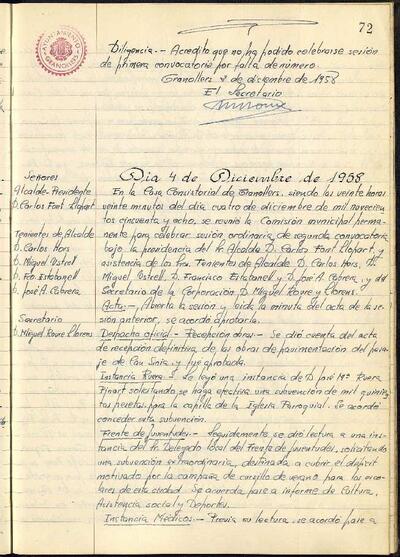 72
AYUNTAMIENTO
GRANOLLERS
Diligencia.- Acredito que no ha podido celebrarse sesión
de primera convocatoria por falta de número.
Granollers 2 de diciembre de 1958
El Secretario
Señores
Alcalde-Presidente
D. Carlos Font Llopart
Tenientes de Alcalde
D. Carlos Hors
D. Miguel Ustrell
D. Fco. Estabanell
D. José A. Cabrera
Secretario
D. Miguel Roure Llorens
Dia 4 de Diciembre de 1958
En la Casa Consistorial de Granollers, siendo las veinte horas
veinte minutos del dia cuatro de diciembre de mil novecien
tos cincuenta y ocho, se reunió la Comisión municipal perma-
nente para celebrar sesión ordinaria de segunda convocatoria
bajo la presidencia del Sr. Alcalde D. Carlos Font Llopart, y
asistencia de los Srs. Tenientes de Alcalde D. Carlos Hors, D.
Miguel Ustrell, D. Francisco Estabanell y D. José A. Cabrera, y del
Secretario de la Corporación D. Miguel Roure y Llorens.
Acta.- Abierta la sesión y leida la minuta del acta de la se
sión anterior, se acordó aprobarla.
Despacho oficial - Recepción obras.- Se dió cuenta del acta
de recepción definitiva de las obras de pavimentación del pasa
je de Can Sinia y fue aprobada.
Instancia Ruera.- Se leyó una instancia de D. José Mª Ruera
Pinart solicitando se haga efectiva una subvención de mil quinien
tas pesetas para la capilla de la Iglesia Parroquial. Se acordó
conceder esta subvención.
Frente de Juventudes.- Seguidamente se dió lectura a una ins-
tancia del Sr. Delegado local del Frente de Juventudes, solicitando
una subvención extraordinaria, destinada a cubrir el déficit
motivado por la campaña de cursillo de verano para los esco-
lares de esta ciudad. Se acuerda pase a informe de Cultura,
Asistencia social y Deportes.
Instancia Médicos.- Previa su lectura, se acordó pase a